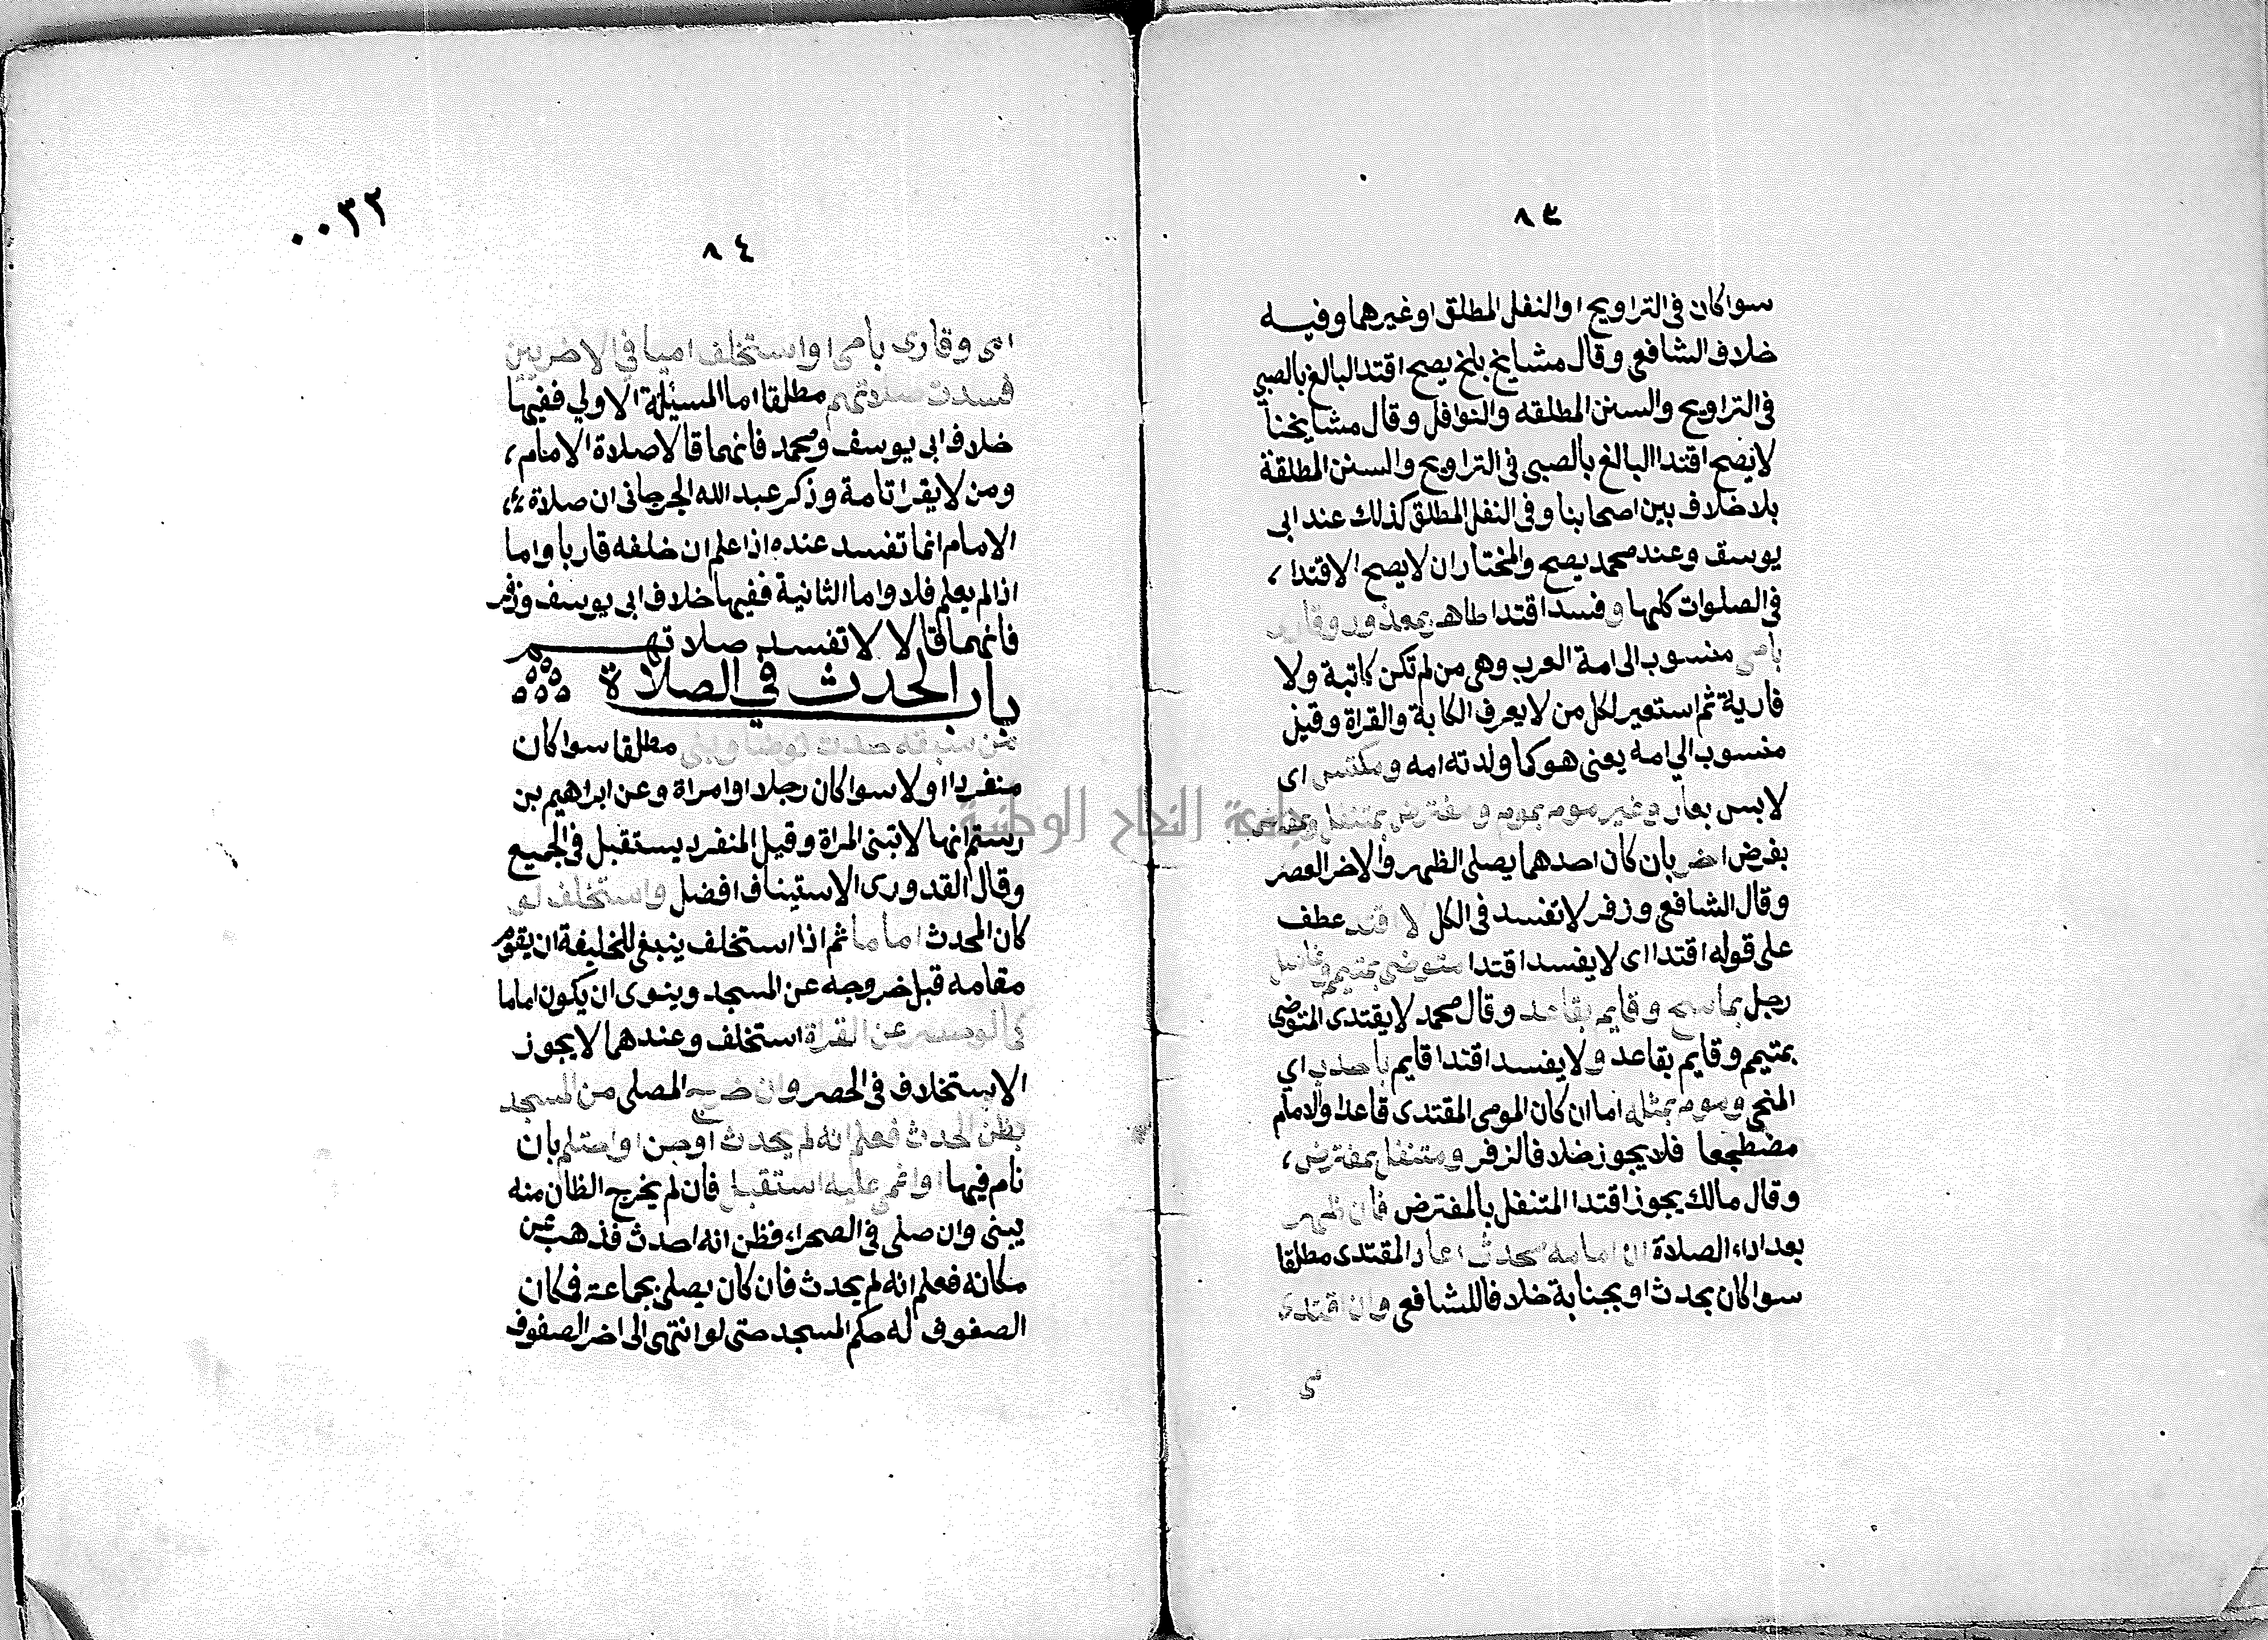 ٨٣
سوا كان في التراويح او النفل المطلق او غيرهما وفيه
خلاف الشافعي وقال مشايخ بلخ يصح اقتدا البالغ بالصبي
في التراويح والسنن المطلقه والنوافل وقال مشايخنا
لا يصح اقتدا البالغ بالصبى في التراويح والسنن المطلقة
بلا خلاف بين اصحابنا وفى النفل المطلق كذلك عند ابى
يوسف وعند محمد يصح والمختار ان لا يصح الاقتدا،
في الصلوات كلها وفسد اقتدا طاهر بمعذور وقارى
بامى منسوب الى امة العرب وهى من لم تكن كاتبة ولا
قارية ثم استعير لكل من لا يعرف الكابة والقراة وقيل
منسوب الي امه يعنى هو كما ولدته امه ومكتس اى
لابس بعار وغير موم بموم ومفترض بمتنفل وبمفترض
بفرض اخر بان كان احدهما يصلى الظهر والاخر العصر
وقال الشافعى وزفر لا تفسد فى الكل لا اقتدا عطف
على قوله اقتدا اى لا يفسد اقتدا متوضى بمتيمم وغاسل
رجل بماسح وقايم بقاعد وقال محمد لا يقتدى المتوضى
بمتيمم وقايم بقاعد ولا يفسد اقتدا قايم باحدب اي
المنحى وموم بمثله اما ان كان المومى المقتدى قاعدا والامام
مضطجعا فلا يجوز خلافا لزفر ومتنفل بمفترض،
وقال مالك يجوز اقتدا المتنفل بالمفترض فان ظهر
بعد اداء الصلاة ان امامه محدث اعاد المقتدى مطلقا
سوا كان بحدث او بجنابة خلافا للشافعي وان اقتدى
٠٠٣٢
٨٤
امى وقارى بامى او استخلف اميا في الاخريين
فسدت صلاتهم مطلقا اما المسئلة الاولي ففيها
خلاف ابى يوسف ومحمد فانهما قالا صلاة الامام،
ومن لا يقرا تامة وذكر عبد الله الجرجانى ان صلاة
الامام انما تفسد عنده اذا علم ان خلفه قاريا واما
اذا لم يعلم فلا واما الثانية ففيها خلاف ابى يوسف وزفر
فانهما قالا لا تفسد صلاتهم
باب الحدث في الصلاة
من سبقه حدث توضا وبنى مطلقا سوا كان
منفردا او لا سوا كان رجلا او امراة وعن ابراهيم بن
رستم انها لا تبنى المراة وقيل المنفرد يستقبل في الجميع
وقال القدورى الاستيناف افضل واستخلف لو
كان المحدث اماما ثم اذا استخلف ينبغى للخليفة ان يقوم
مقامه قبل خروجه عن المسجد وينوى ان يكون اماما
كما لو حصر عن القراة استخلف وعندهما لا يجوز
الاستخلاف فى الحصر وان خرج المصلى من المسجد
بظن الحدث فعلم انه لم يحدث او جن او احتلم بان
نام فيها او اغمى عليه استقبل فان لم يخرج الظان منه
يبنى وان صلى في الصحراء فظن انه احدث فذهب عن
مكانه فعلم انه لم يحدث فان كان يصلى بجماعة فكان
الصفوف له حكم المسجد حتى لو انتهى الى اخر الصفوف
جامعة النجاح الوطنية